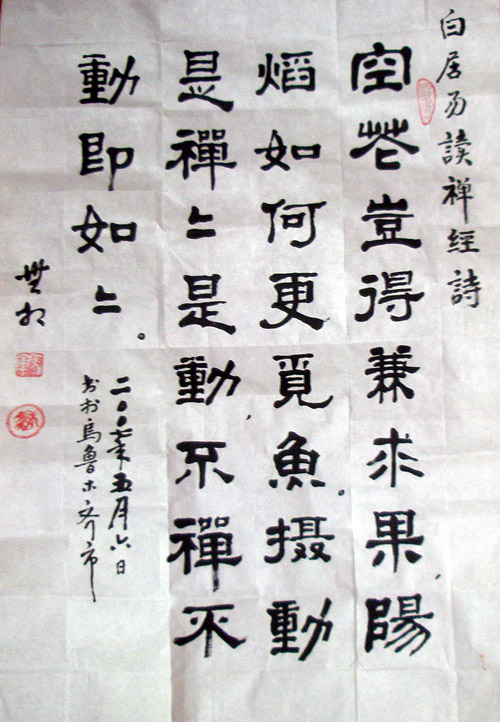 白居易讀禅經詩
空花豈得兼求果，陽
熖如何更覓魚。摄動
是禪〻是動，不禪不
動即如〻。
二〇〇七年五月六日
书於烏魯木齐市
無相